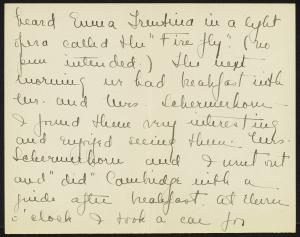 heard Emma Trentina in a light
opera called the "Fire fly". (no
pun intended.) The next
morning we had breakfast with
Mr. and Mrs. Schermerhorn
I found them very interesting
and enjoyed seeing them. Mrs.
Schermerhorn and I went out
and "did" Cambridge with a
guide after breakfast. at eleven
o'clock I took a car for